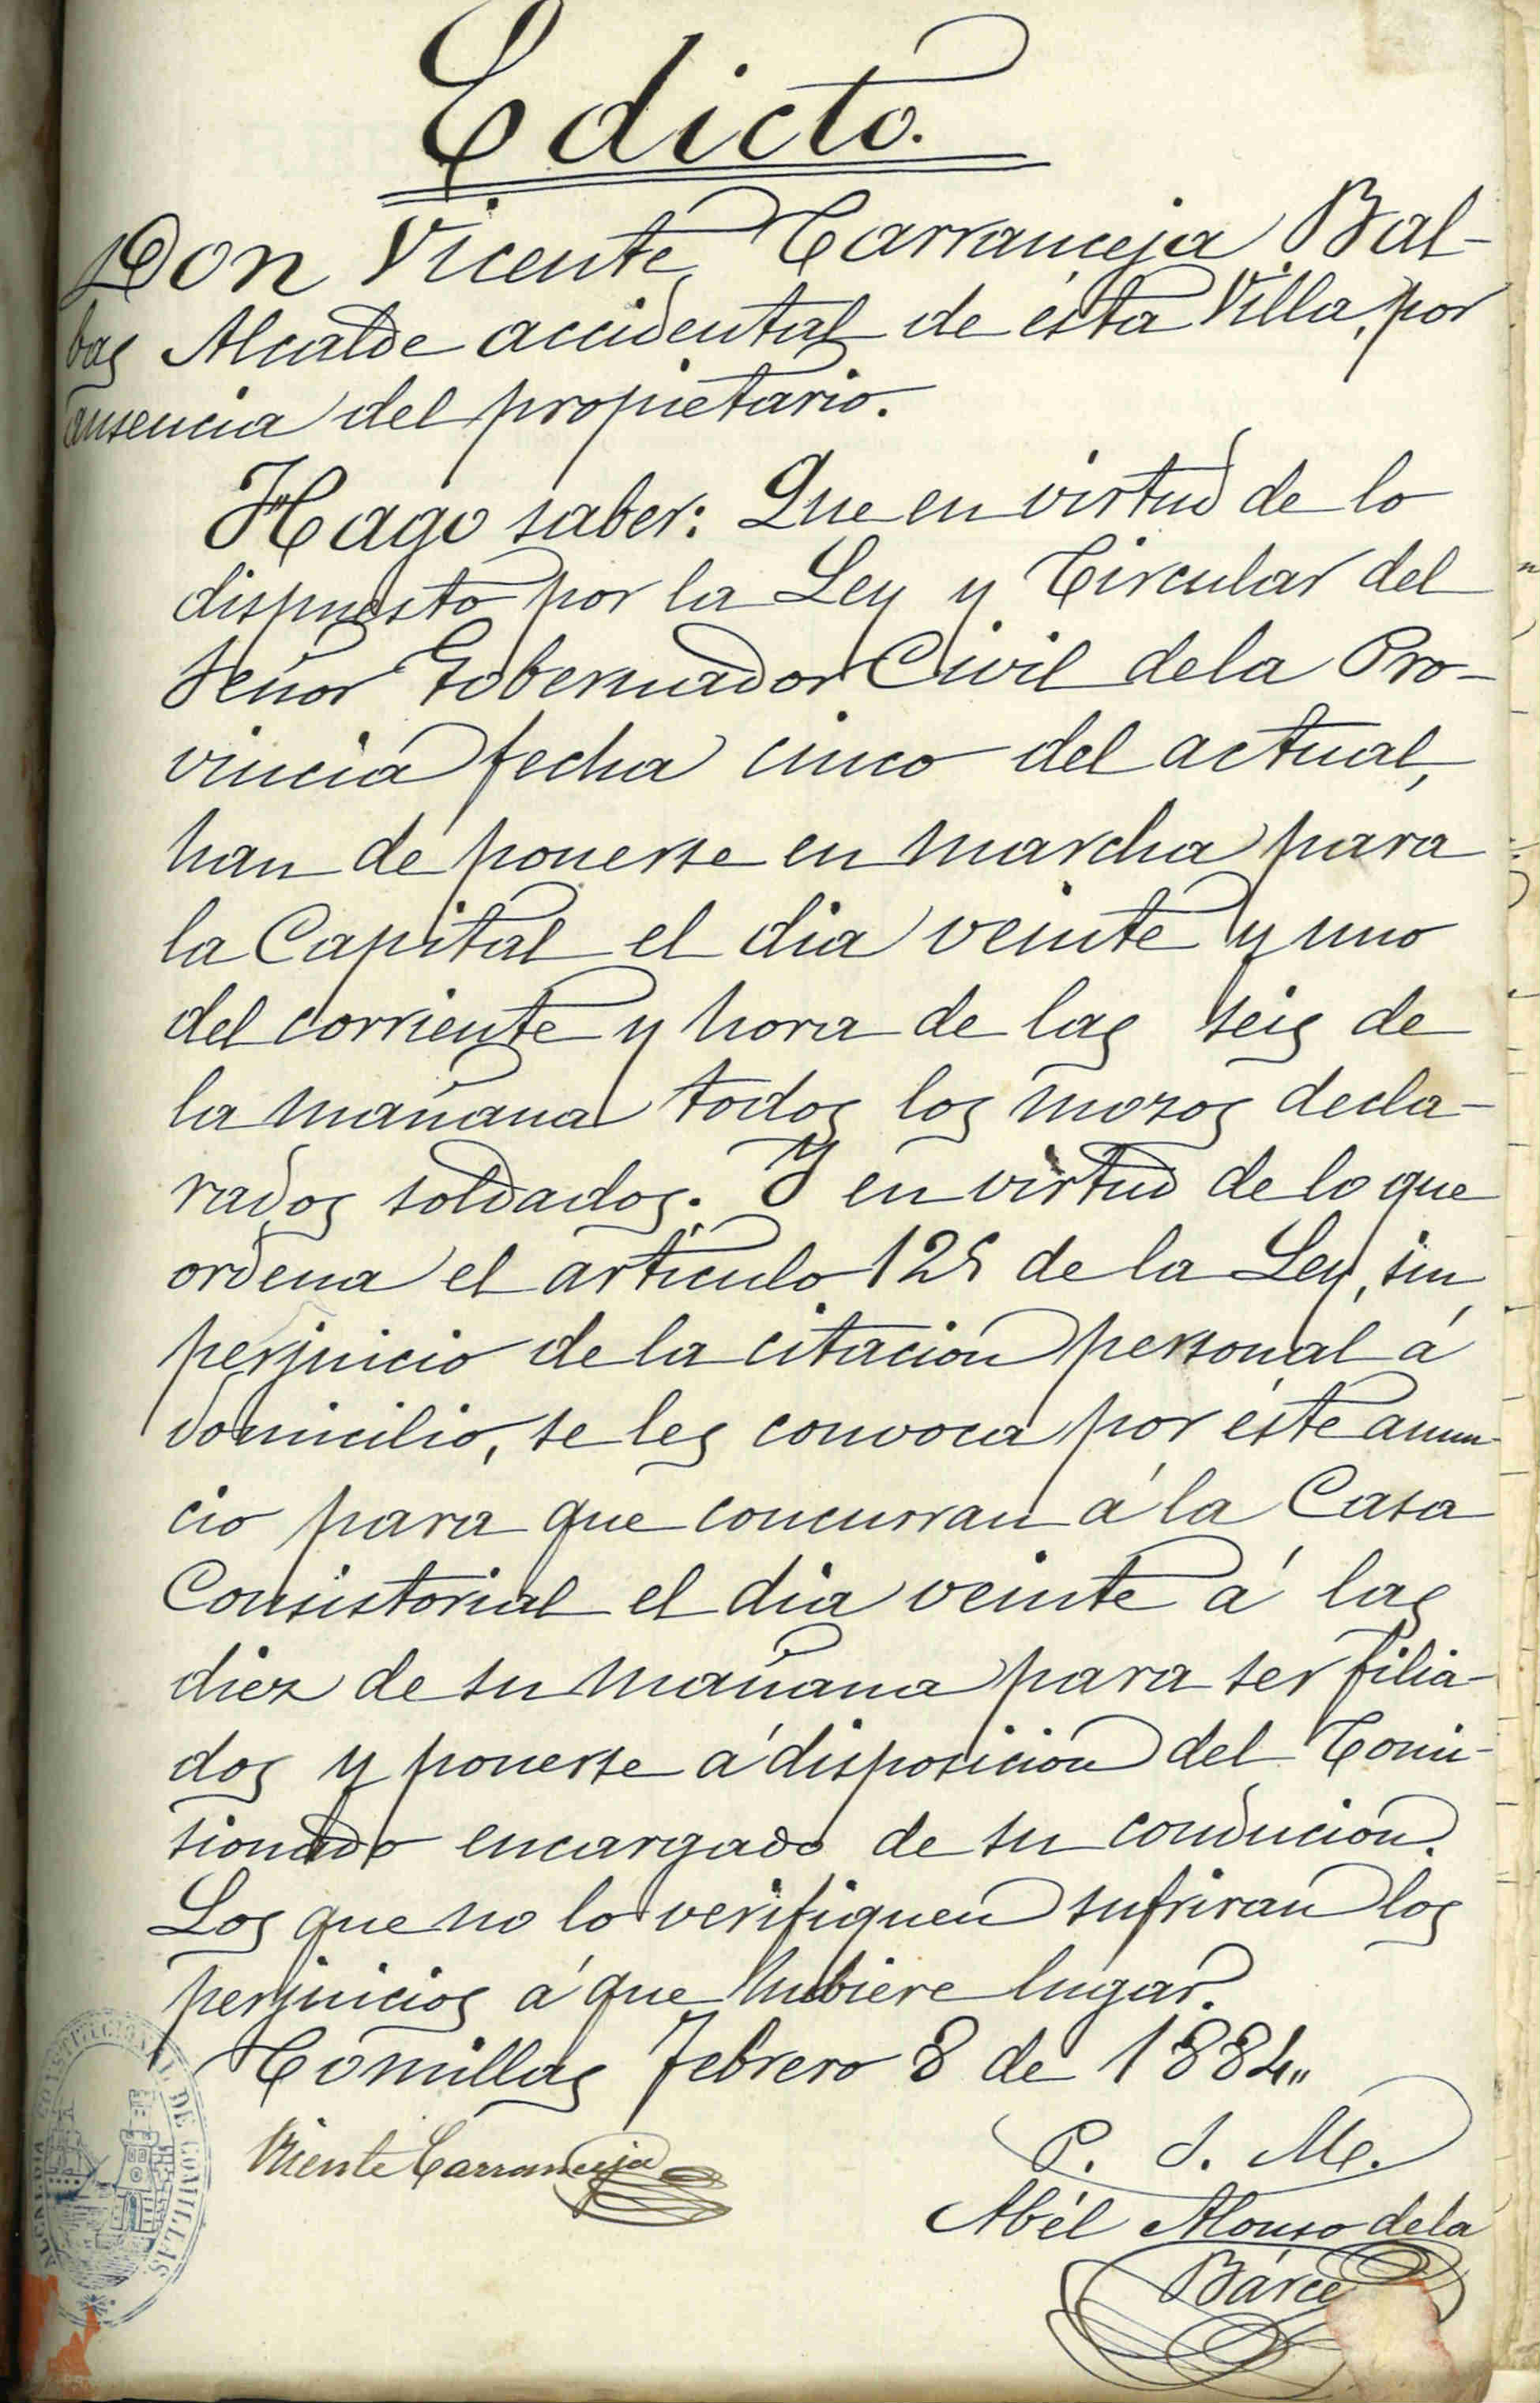 Edicto.
Don Vicente Carranceja Bal-
bas Alcalde accidental de ésta Villa, por
ausencia del propietario.
Hago saber: Que en virtud de lo
dispuesto por la Ley y Circular del
Señor Gobernador Civil dela Pro-
vincia fecha cinco del actual,
han de ponerse en marcha para
la Capital el dia veinte y uno
del corriente y hora de las seis de
la mañana todos los mozos decla-
rados soldados. Y en virtud de lo que
ordena el artículo 125 de la Ley, sin
perjuicio de la citación personal á
domicilio, se les convoca por éste anun-
cio para que concurran á la Casa
Consistorial el dia veinte á las
diez de su mañana para ser filia-
dos y ponerse á disposición del Comi-
sionado encargado de su condución.
Los que no lo verifiquen sufriran los
perjuicios á que hubiere lugar.
Comillas Febrero 8 de 1884„
Vicente Carranceja
P. S. M.
Abél Alonso dela
Bárce
ALCALDIA CONSTITUCIONAL DE COMILLAS